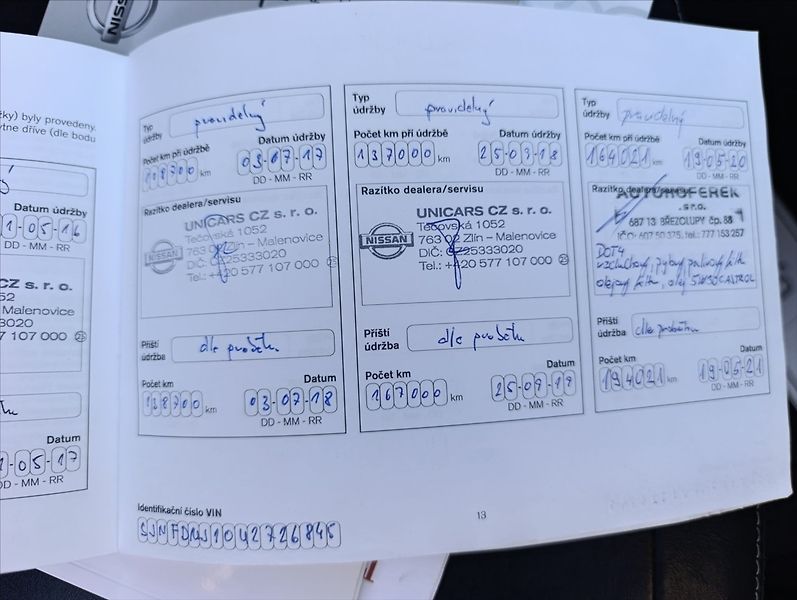 NISSAN
žky) byly provedeny.
ytne dříve (dle bodu
Datum údržby
1-05-16
DD - MM - RR
CZ s. r. o.
1052
Malenovice
3020
107 000 23
Datum
1-05-17
DD - MM - RR
Typ údržby
pravidelný
Počet km při údržbě
108700 km
Datum údržby
03-07-17
DD - MM - RR
Razítko dealera/servisu
NISSAN
UNICARS CZ s. r. o.
Tečovská 1052
763 02 Zlín – Malenovice
DIČ: CZ25333020
Tel.: +420 577 107 000 23
Příští údržba
dle proběhu
Počet km
138700 km
Datum
03-07-18
DD - MM - RR
Typ údržby
pravidelný
Počet km při údržbě
137000 km
Datum údržby
25-09-18
DD - MM - RR
Razítko dealera/servisu
NISSAN
UNICARS CZ s. r. o.
Tečovská 1052
763 02 Zlín – Malenovice
DIČ: CZ25333020
Tel.: +420 577 107 000 23
Příští údržba
dle proběhu
Počet km
167000 km
Datum
25-09-19
DD - MM - RR
Typ údržby
pravidelný
Počet km při údržbě
164021 km
Datum údržby
19-05-20
DD - MM - RR
Razítko dealera/servisu
AUTOHOFEREK
s.r.o.
687 13 BŘEZOLUPY čp. 88
IČO: 607 50 375, tel.: 777 153 257
DOT4
vzduchový, pylový palivový filtr
olejový filtr, olej 5W30 CASTROL
Příští údržba
dle proběhu
Počet km
194021 km
Datum
19-05-21
DD - MM - RR
Identifikační číslo VIN
SJNFDNJ1042726845
13